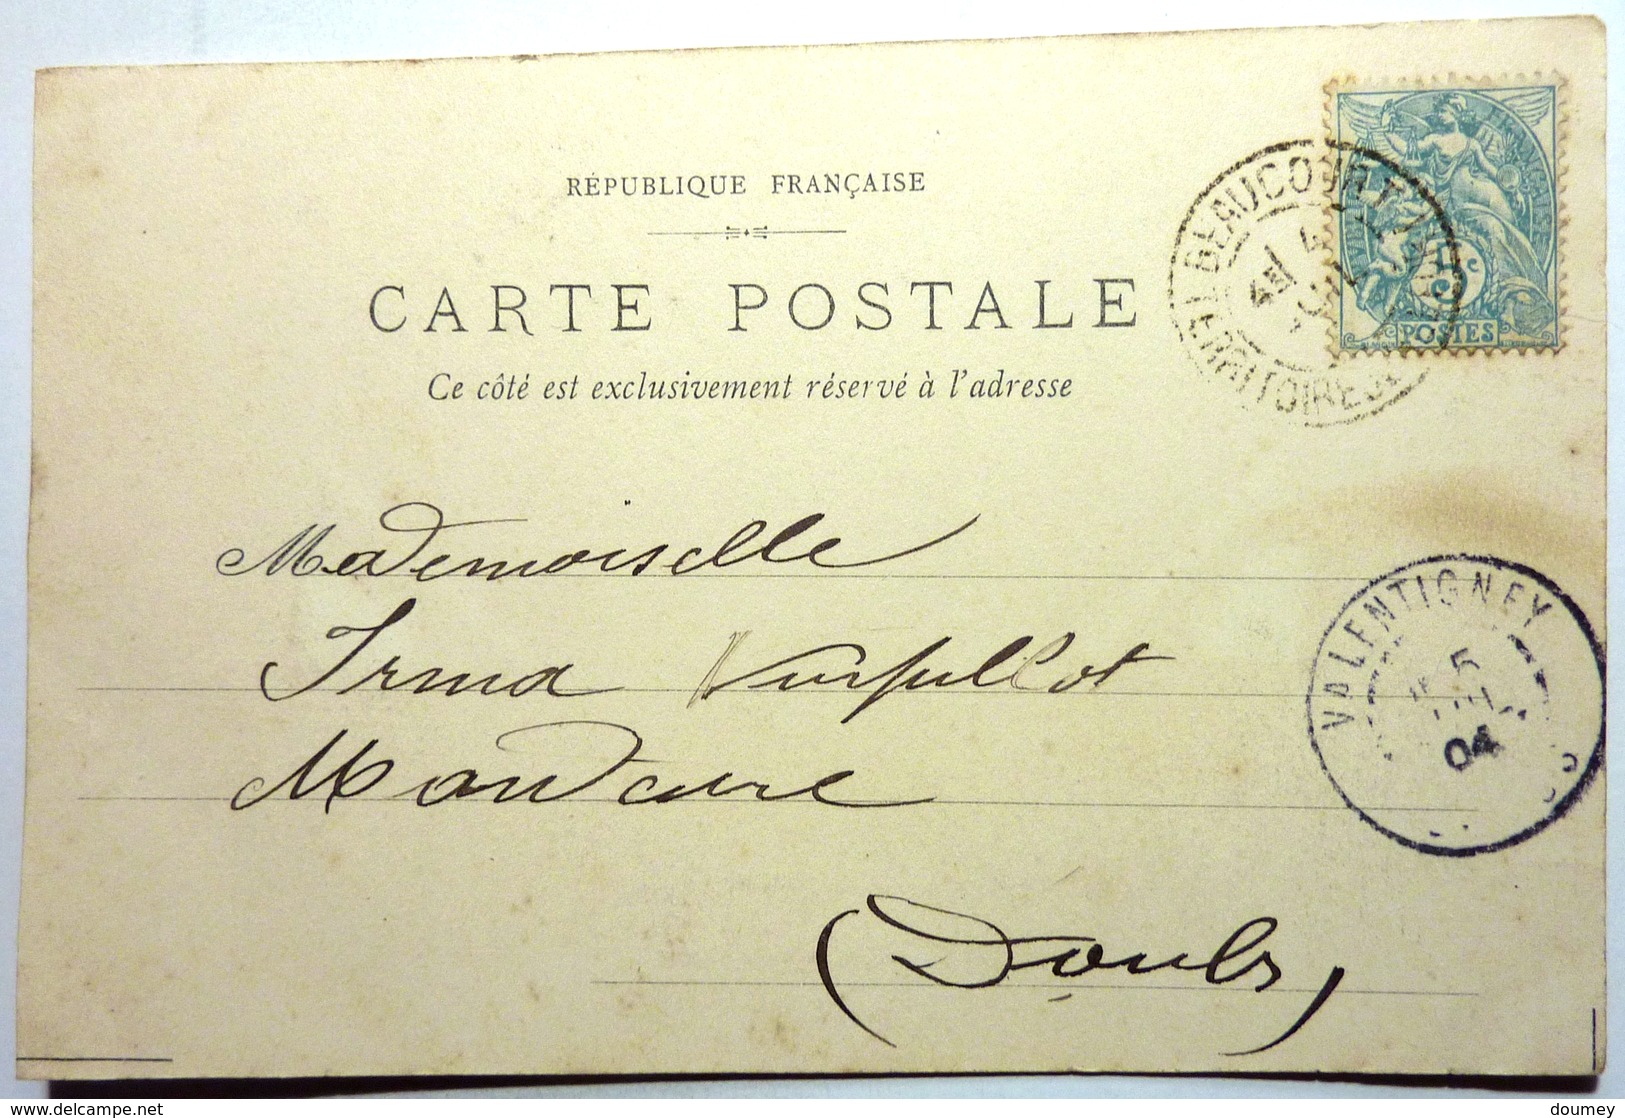 RÉPUBLIQUE FRANÇAISE
CARTE POSTALE
Ce côté est exclusivement réservé à l'adresse
BEAUCOURT
TERRITOIRE
5c
POSTES
Mademoiselle
Irma Vurpillot
Mandeure
(Doubs)
VALENTIGNEY
5
04
delcampe.net
doumey